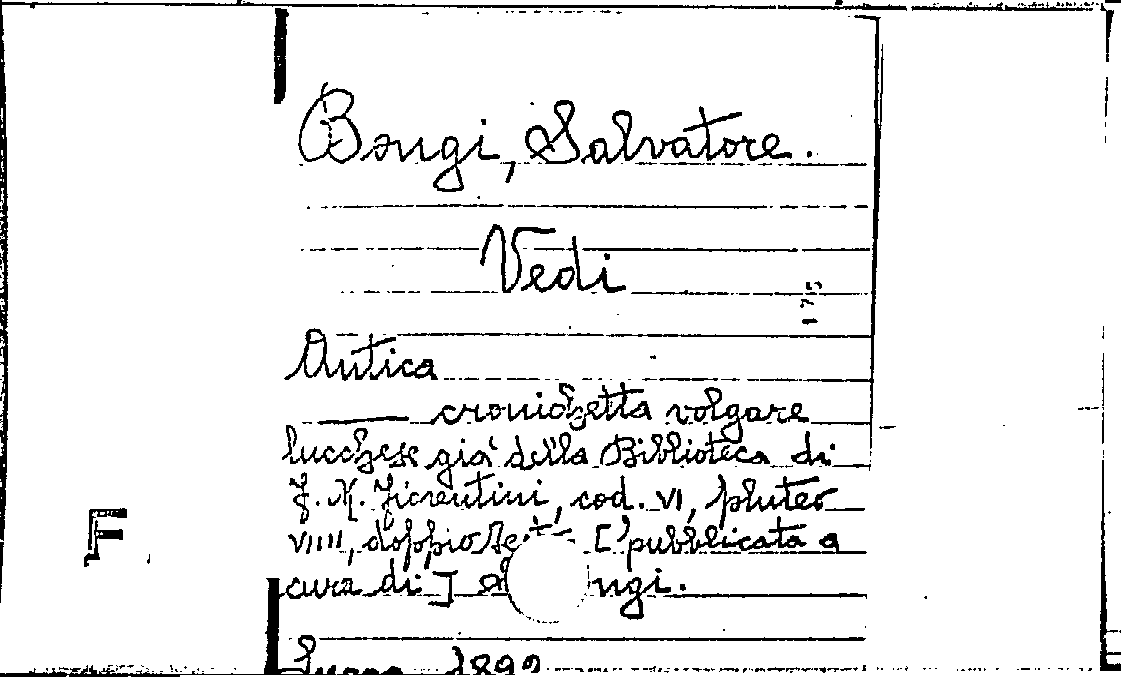 Bongi, Salvatore.
Vedi
175
Antica
cronichetta volgare
lucchese già della Biblioteca di
F. M. Fiorentini, cod. VI, pluteo
VIIII, doppio [pubblicata a
cura di]
F
Lucca 1892